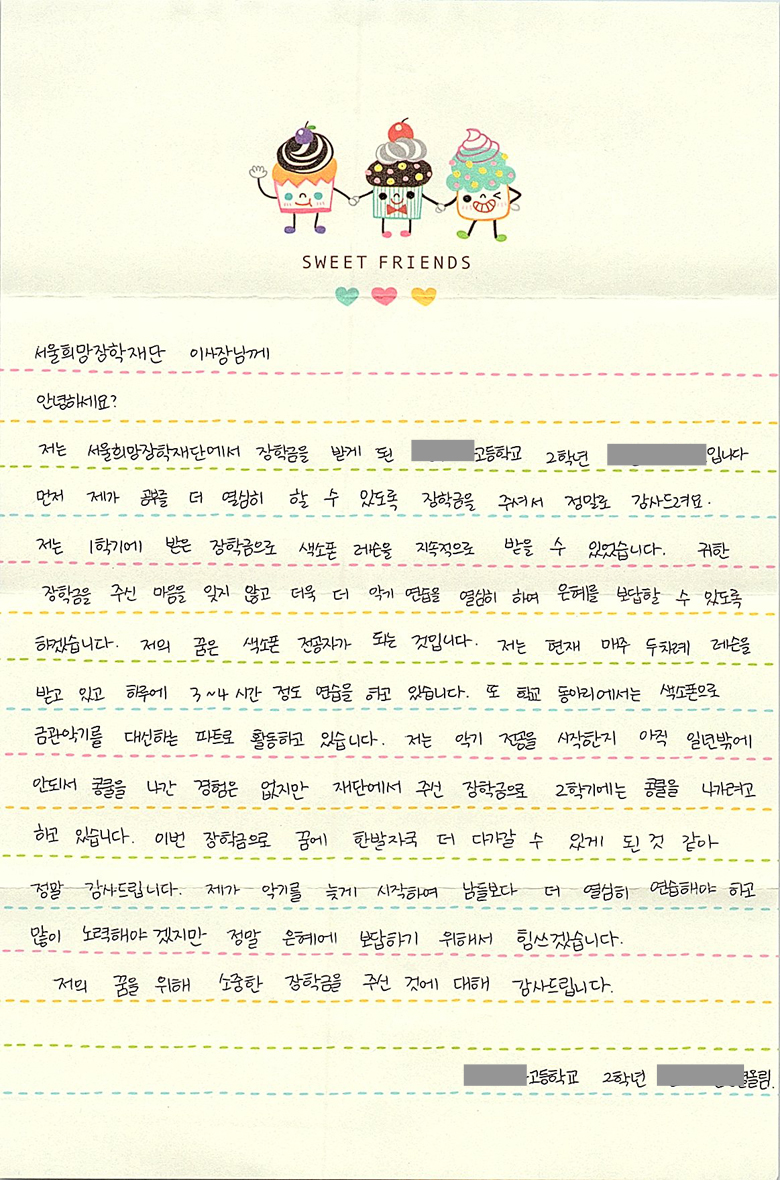 SWEET FRIENDS
서울희망장학재단 이사장님께
안녕하세요?
저는 서울희망장학재단에서 장학금을 받게 된 고등학교 2학년 입니다
먼저 제가 공부를 더 열심히 할 수 있도록 장학금을 주셔서 정말로 감사드려요.
저는 1학기에 받은 장학금으로 색소폰 레슨을 지속적으로 받을 수 있었습니다. 귀한
장학금을 주신 마음을 잊지 않고 더욱 더 악기 연습을 열심히 하여 은혜를 보답할 수 있도록
하겠습니다. 저의 꿈은 색소폰 전공자가 되는 것입니다. 저는 현재 매주 두차례 레슨을
받고 있고 하루에 3~4시간 정도 연습을 하고 있습니다. 또 학교 동아리에서는 색소폰으로
금관악기를 대신하는 파트로 활동하고 있습니다. 저는 악기 전공을 시작한지 아직 일년밖에
안되서 콩쿨을 나간 경험은 없지만 재단에서 주신 장학금으로 2학기에는 콩쿨을 나가려고
하고 있습니다. 이번 장학금으로 꿈에 한발자국 더 다가갈 수 있게 된 것 같아
정말 감사드립니다. 제가 악기를 늦게 시작하여 남들보다 더 열심히 연습해야 하고
많이 노력해야 겠지만 정말 은혜에 보답하기 위해서 힘쓰겠습니다.
저의 꿈을 위해 소중한 장학금을 주신 것에 대해 감사드립니다.
고등학교 2학년 올림.